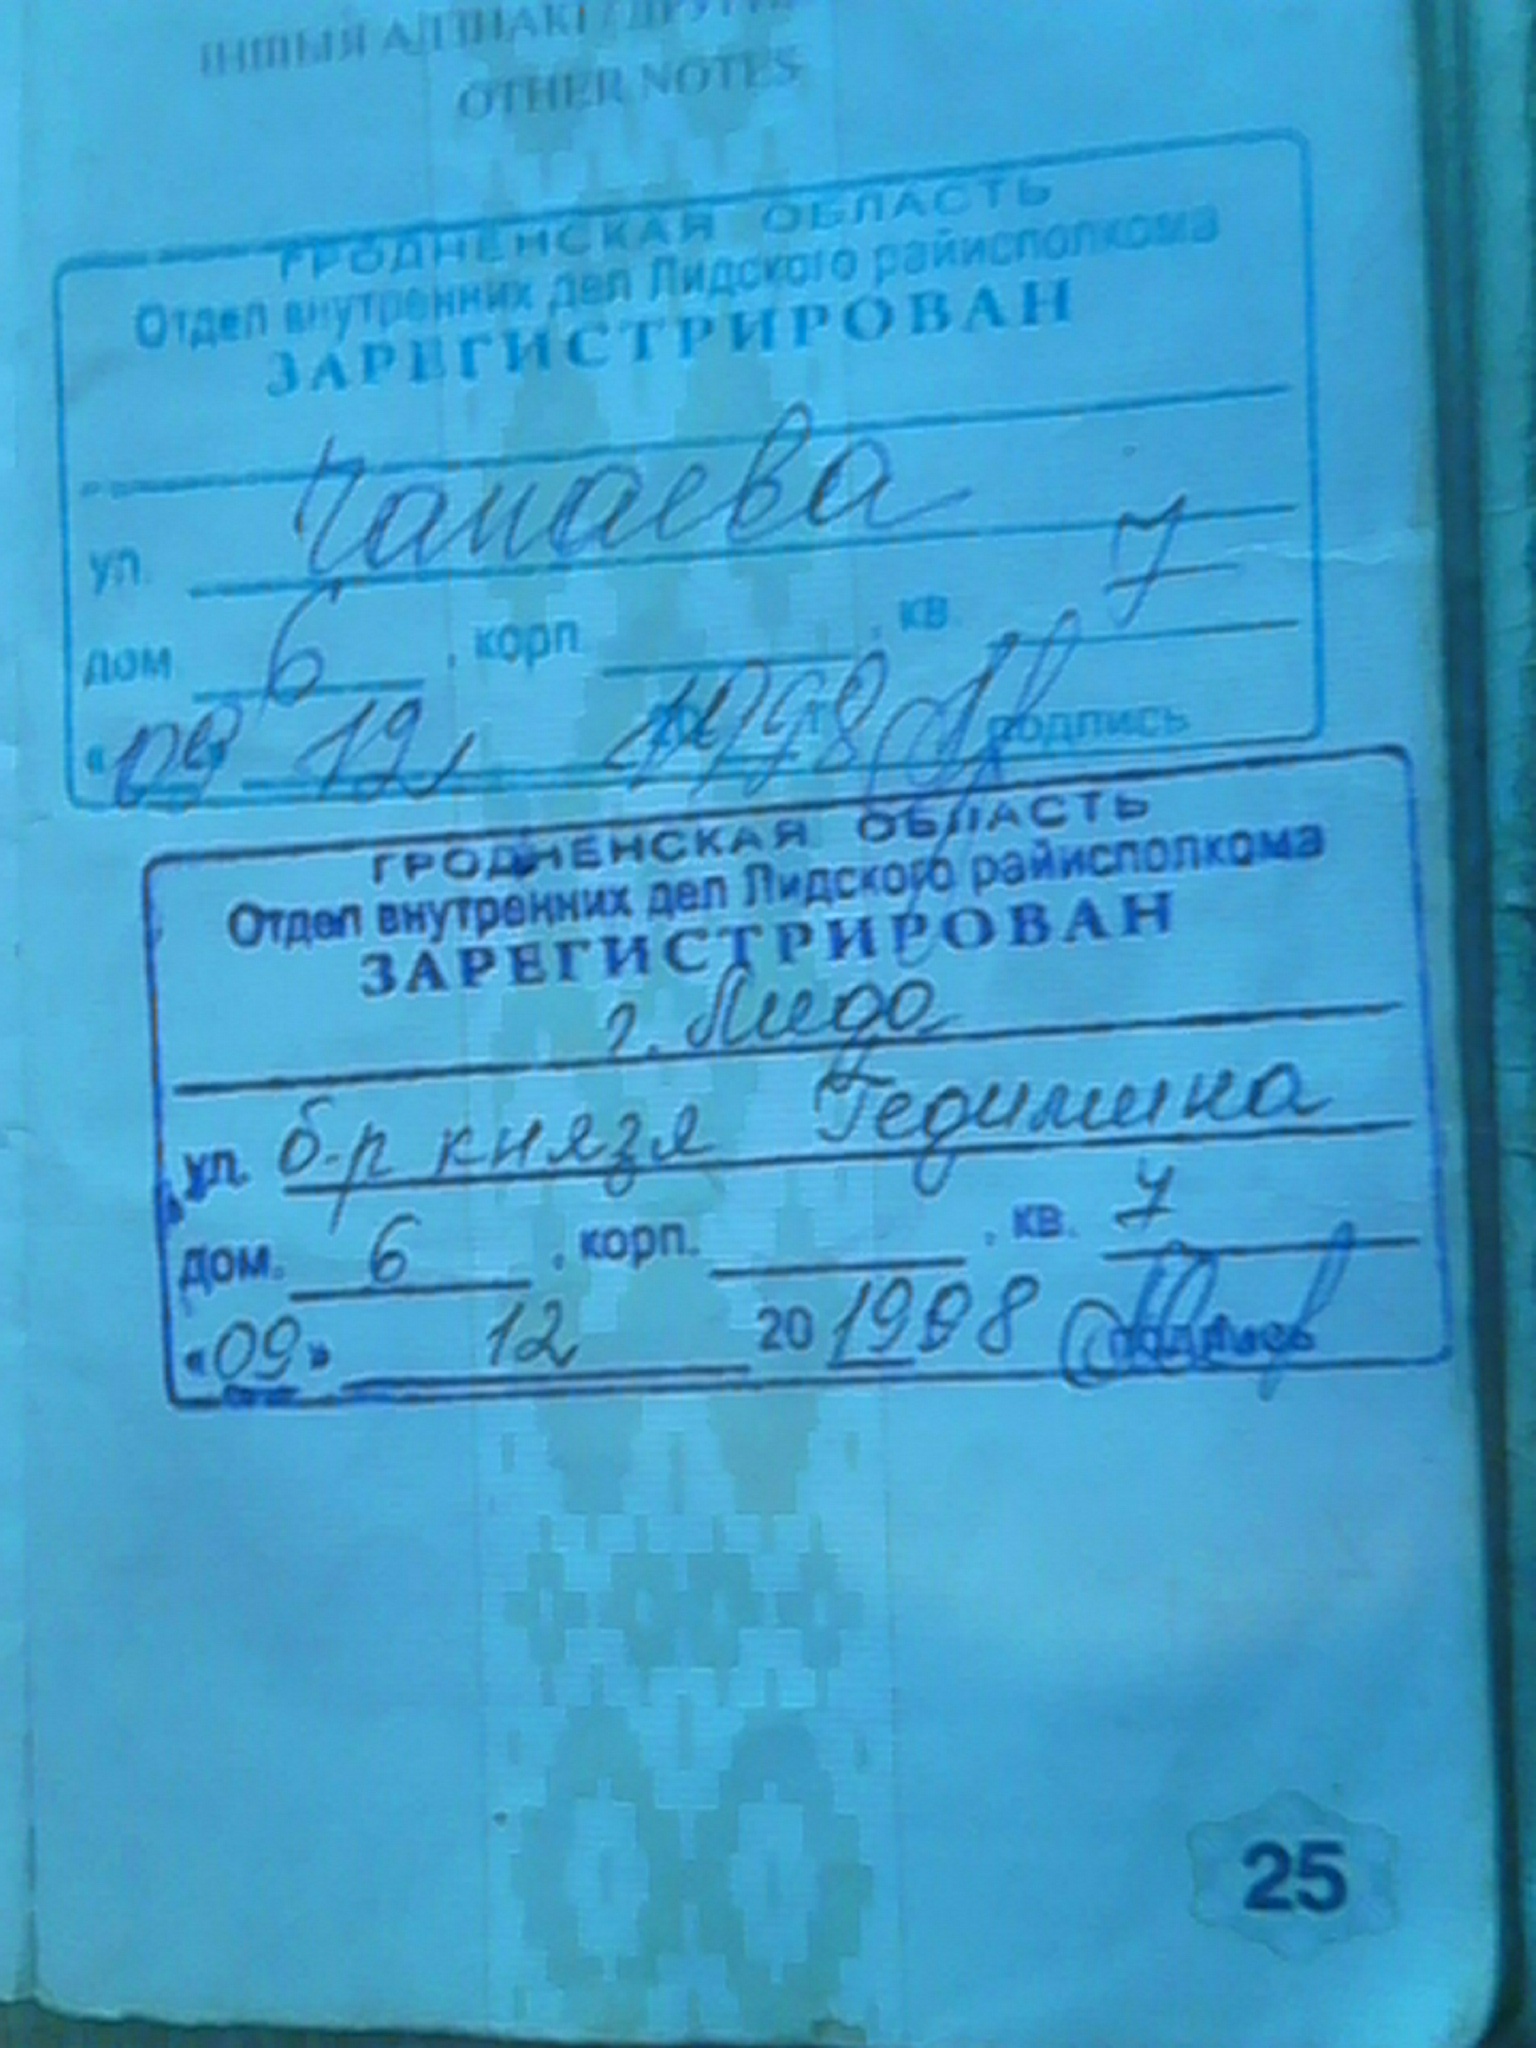 ІНШЫЯ АДЗНАКІ / ДРУГИЕ
OTHER NOTES
ГРОДНЕНСКАЯ ОБЛАСТЬ
Отдел внутренних дел Лидского райисполкома
ЗАРЕГИСТРИРОВАН
ул. Чапаева
дом 6, корп. , кв. 7
«09» 12 1998 г. подпись
ГРОДНЕНСКАЯ ОБЛАСТЬ
Отдел внутренних дел Лидского райисполкома
ЗАРЕГИСТРИРОВАН
г. Лида
ул. б-р князя Гедимина
дом. 6, корп. , кв. 7
«09» 12 20 1998 подпись
25